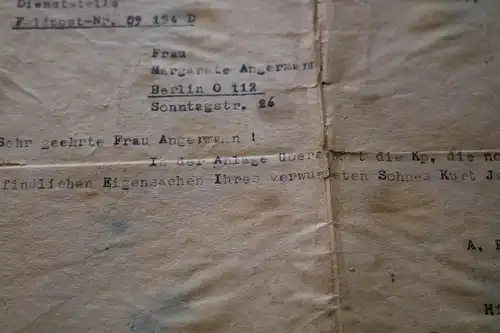 Dienststelle
Feldpost-Nr. 09 194 D
Frau
Margarete Angermann
Berlin O 112
Sonntagstr. 26
Sehr geehrte Frau Angermann !
In der Anlage die Kp. die no
findlichen Eigensachen Ihres verwundeten Sohnes Kurt Ja
A.
Hi